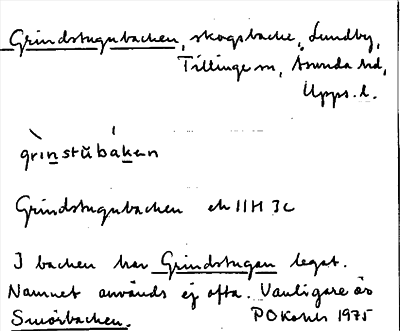 Grindstugubacken, skogsbacke, Lundby,
Tillinge sn, Åsunda hd,
Upps. l.
grìnstŭbáken
Grindstugubacken ek 11H 3c
I backen har Grindstugan legat.
Namnet används ej ofta. Vanligare är
Smörbacken. 1975